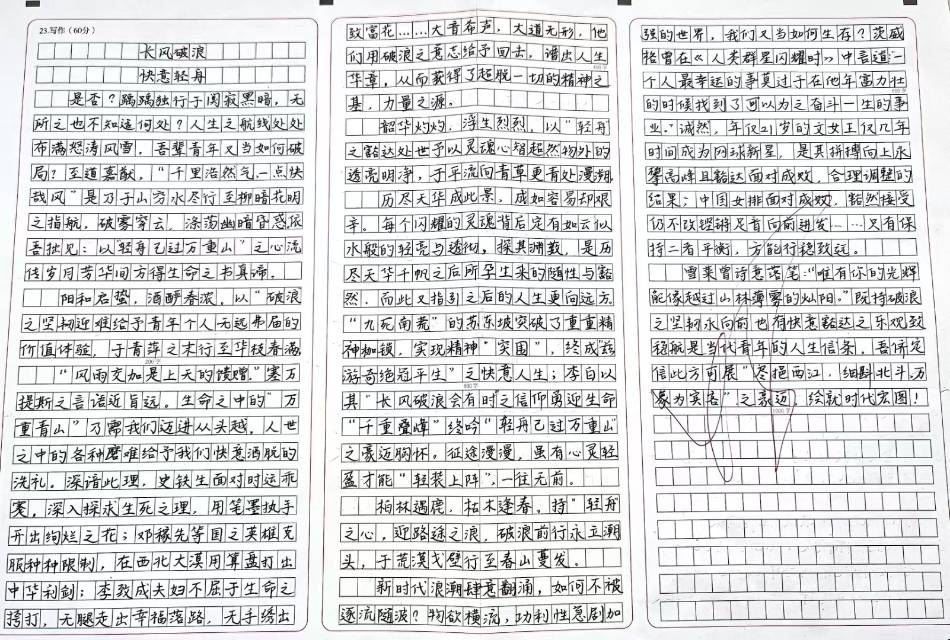 23.写作(60分)
长风破浪
快意轻舟
是否?踽踽独行于阒寂黑暗,无
所之也不知适何处?人生之航线处处
布满怒涛风雪,吾辈青年又当如何破
局?至道嘉猷,“千里浩然气一点快
哉风”是刃于山穷水尽行至柳暗花明
之指航,破雾穿云,涤荡幽暗昏惑依
吾拙见:以轻舟已过万重山”之心流
传岁月芳华间方得生命之书真谛。
阳和启蛰,酒酽春浓,以“破浪
之坚韧迎难给予青年个人无远弗届的
价值体验,于青萍之末行至华枝春满
200字
“风雨交加是上天的馈赠.”塞万
提斯之言语近旨远。生命之中的“万
重青山”乃需我们迈进从头越,人世
之中的各种磨难给予我们快意洒脱的
洗礼。深谙此理,史铁生面对时运乖
蹇,深入探求生死之理,用笔墨执手
开出绚烂之花;邓稼先等国之英雄克
服种种限制,在西北大漠用算盘打出
中华利剑;李致成夫妇不屈于生命之
捣打,无腿走出幸福落路,无手绣出
致富花……大音希声,大道无形,他
们用破浪之意志给予回击,谱出人生
400字
华章,从而获得了超脱一切的精神之
基,力量之源。
韶华灼灼,浮生烈烈,以“轻舟
之豁达处世予以灵魂心智超然物外的
透亮明净,于平流向青草更青处漫溯
历尽天华成此景,成如容易却艰
辛。每个闪耀的灵魂背后定有如云似
水般的轻亮与透彻,探其渊薮,是历
尽天华千帆之后所孕生来的随性与豁
然,而此又指引之后的人生更向远方
“九死南荒”的苏东坡突破了重重精
神枷锁,实现精神“突围”,终成“兹
游奇绝冠平生”之快意人生;李白以
其“长风破浪会有时”之信仰勇迎生命
“千重叠嶂”终吟“轻舟已过万重山”
之豪迈胸怀。征途漫漫,虽有心灵轻
盈才能“轻装上阵”,一往无前。
柏林遇鹿,枯木逢春。持“轻舟”
之心,迎路途之浪,破浪前行永立潮
头,于荒漠戈壁行至春山蔓发。
新时代浪潮肆意翻涌,如何不被
逐流随波?物欲横流,功利性急剧加
强的世界,我们又当如何生存?茨威
格曾在《人类群星闪耀时》中言道“一
个人最幸运的事莫过于在他年富力壮
的时候找到了可以为之奋斗一生的事
业.”诚然,年仅21岁的文女王仅几年
时间成为网球新星,是其拼搏向上永
攀高峰且豁达面对成败,合理调整的
结果;中国女排面对成败,豁然接受
仍不改铿锵足音向前迸发……只有保
持二者平衡,方能行稳致远。
雪莱曾诗意落笔:“唯有你的光辉
能像越过山林薄雾的灿阳。”既持破浪
之坚韧永向前也有快意豁达之乐观致
稳航是当代青年的人生信条。吾侪定
信此方可展“尽挹西江,细斟北斗,万
象为宾客”之豪迈,绘就时代宏图!
1000字